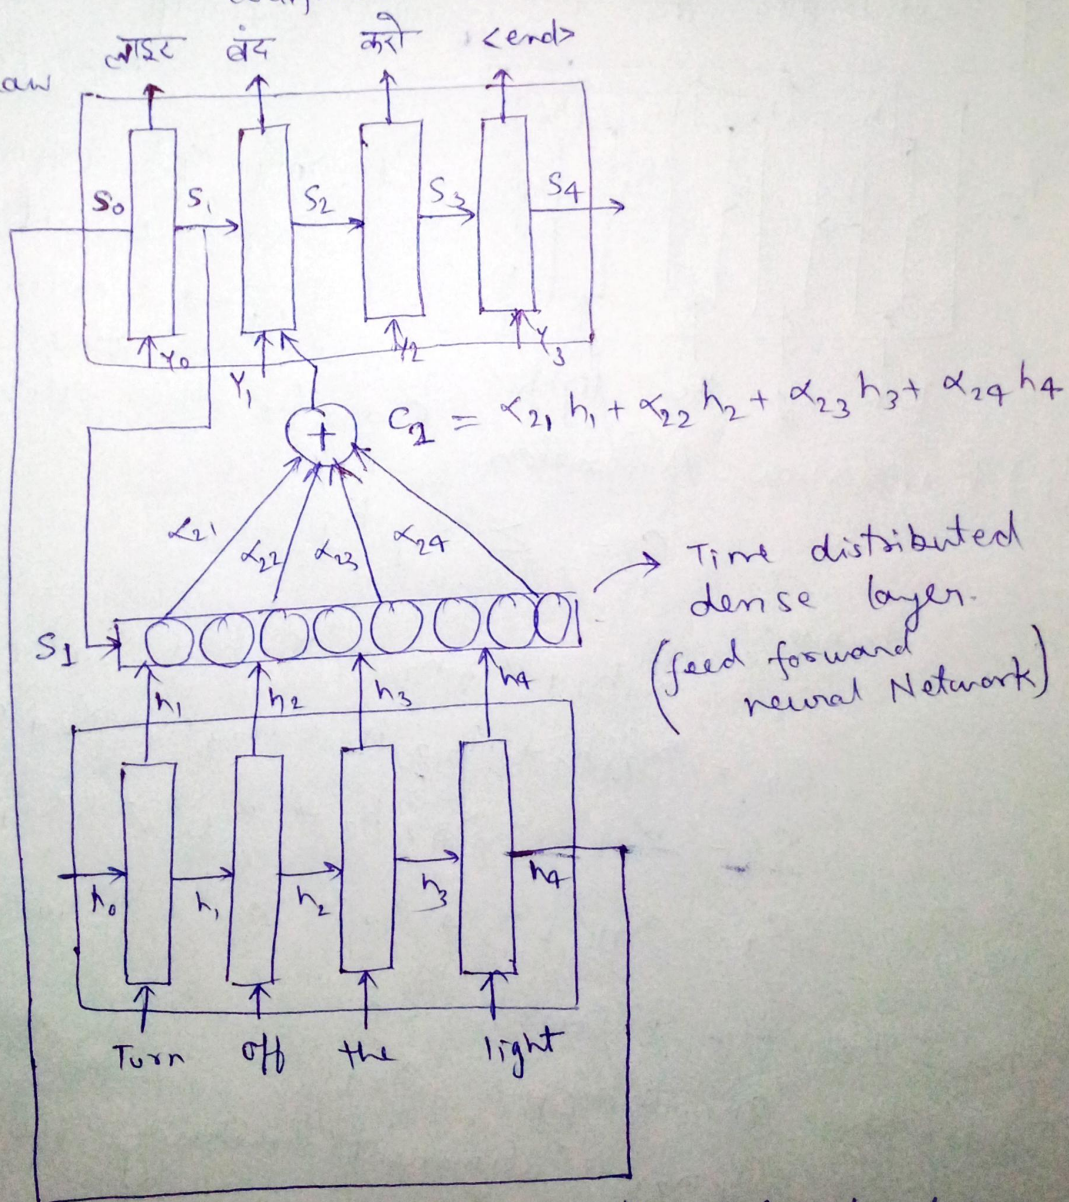 लाइट बंद करो <end>
S₀ S₁ S₂ S₃ S₄
Y₀ Y₁ Y₂ Y₃
+ C₂ = α₂₁ h₁ + α₂₂ h₂ + α₂₃ h₃ + α₂₄ h₄
α₂₁ α₂₂ α₂₃ α₂₄
Time distributed
dense layer.
(feed forward
neural Network)
S₁
h₁ h₂ h₃ h₄
h₀ h₁ h₂ h₃ h₄
Turn off the light